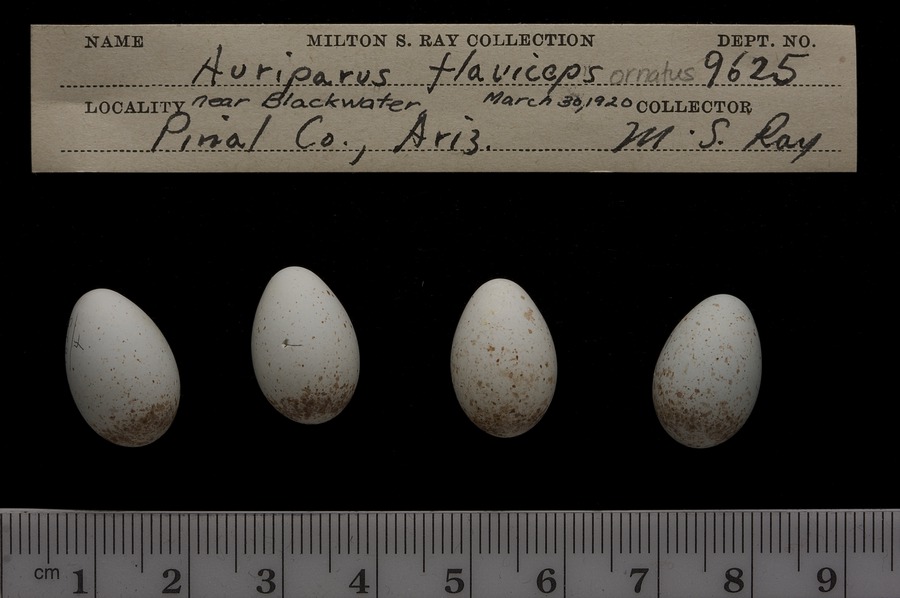 NAME MILTON S. RAY COLLECTION DEPT. NO.
Auriparus flaviceps ornatus 9625
LOCALITY near Blackwater March 30, 1920 COLLECTOR
Pinal Co., Ariz. M. S. Ray
cm 1 2 3 4 5 6 7 8 9